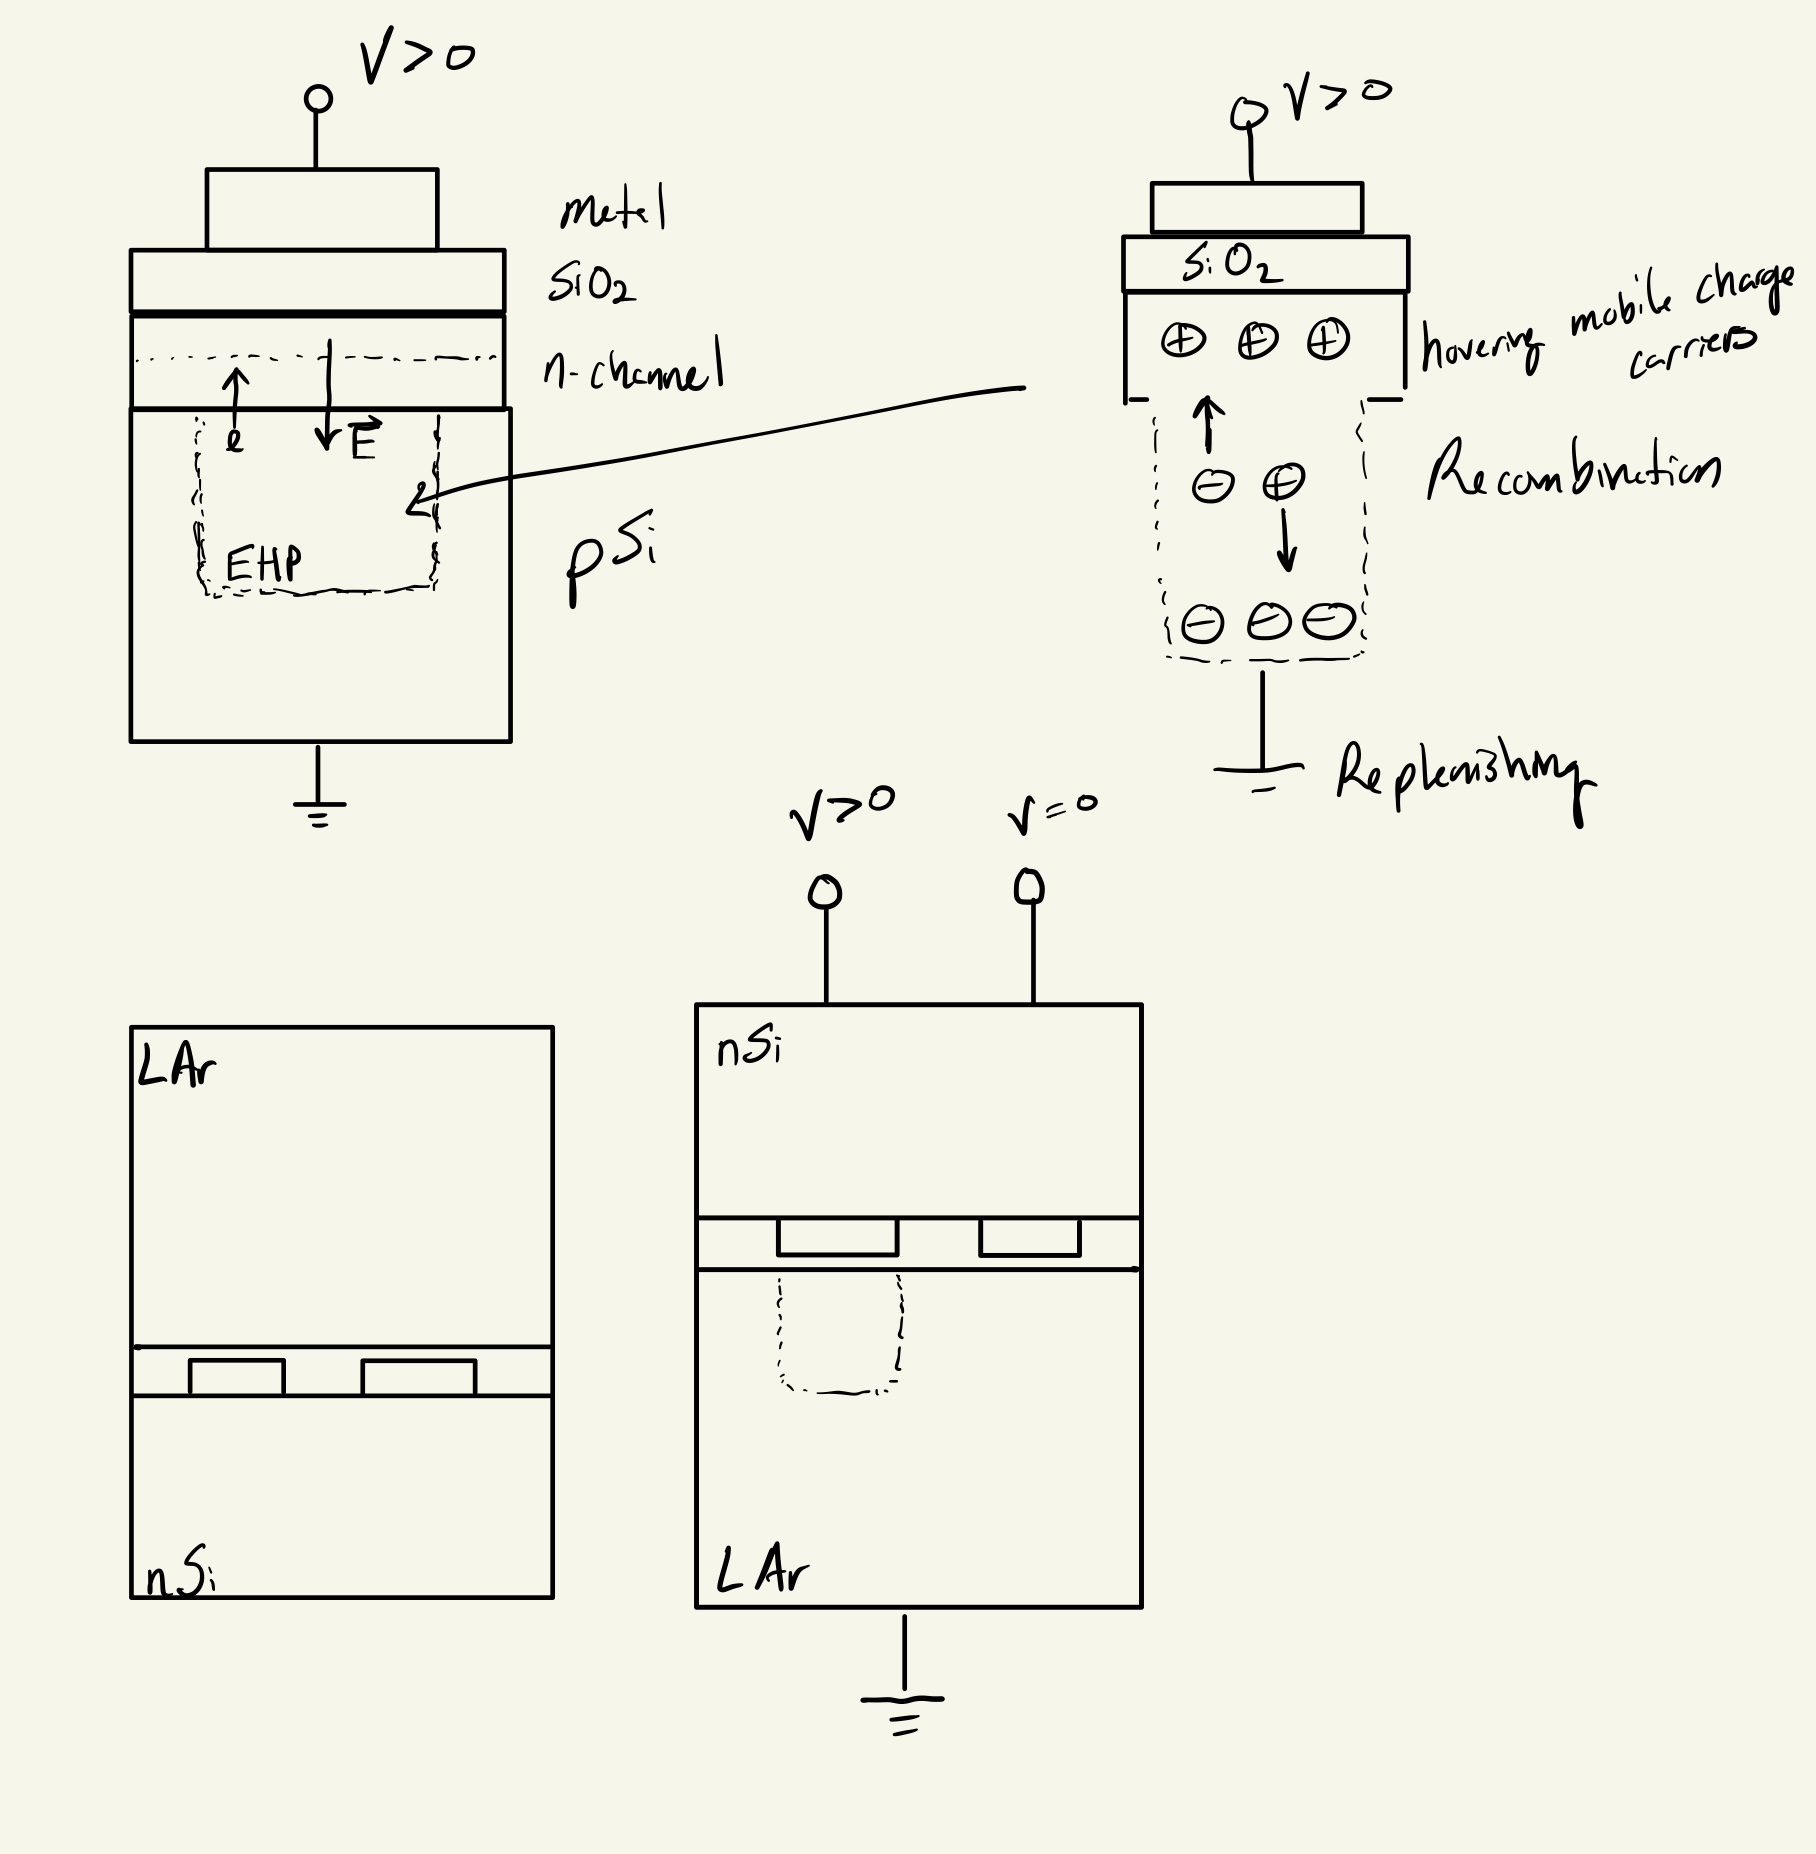 V > 0
metal
SiO2
n-channel
e
E
EHP
pSi
V > 0
SiO2
+ + +
hovering mobile charge
carriers
- +
Recombination
- - -
Replenishing
LAr
nSi
V > 0
V = 0
nSi
LAr